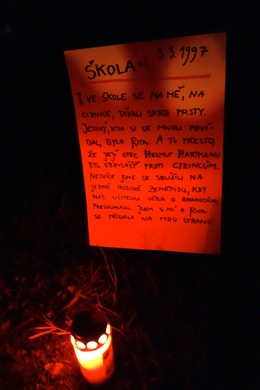 ŠKOLA 3.3.1997
I VE ŠKOLE SE NA MĚ, NA
CIZINCE, DÍVALI SKRZE PRSTY.
JEDINÝ, KDO SI SE MNOU POVÍ-
DAL, BYLA RITA. A TO PŘESTO,
ŽE JEJÍ OTEC HELMUT HARTMANN
BYL OBZVLÁŠŤ PROTI CIZINCŮM.
NEJVÍCE JSME SE SBLÍŽILI NA
JEDNÉ HODINĚ ZEMĚPISU, KDY
NÁS UČITELKA UČILA O
JSEM S NÍ A RITA
SE PŘIDALA NA MOU STRANU.